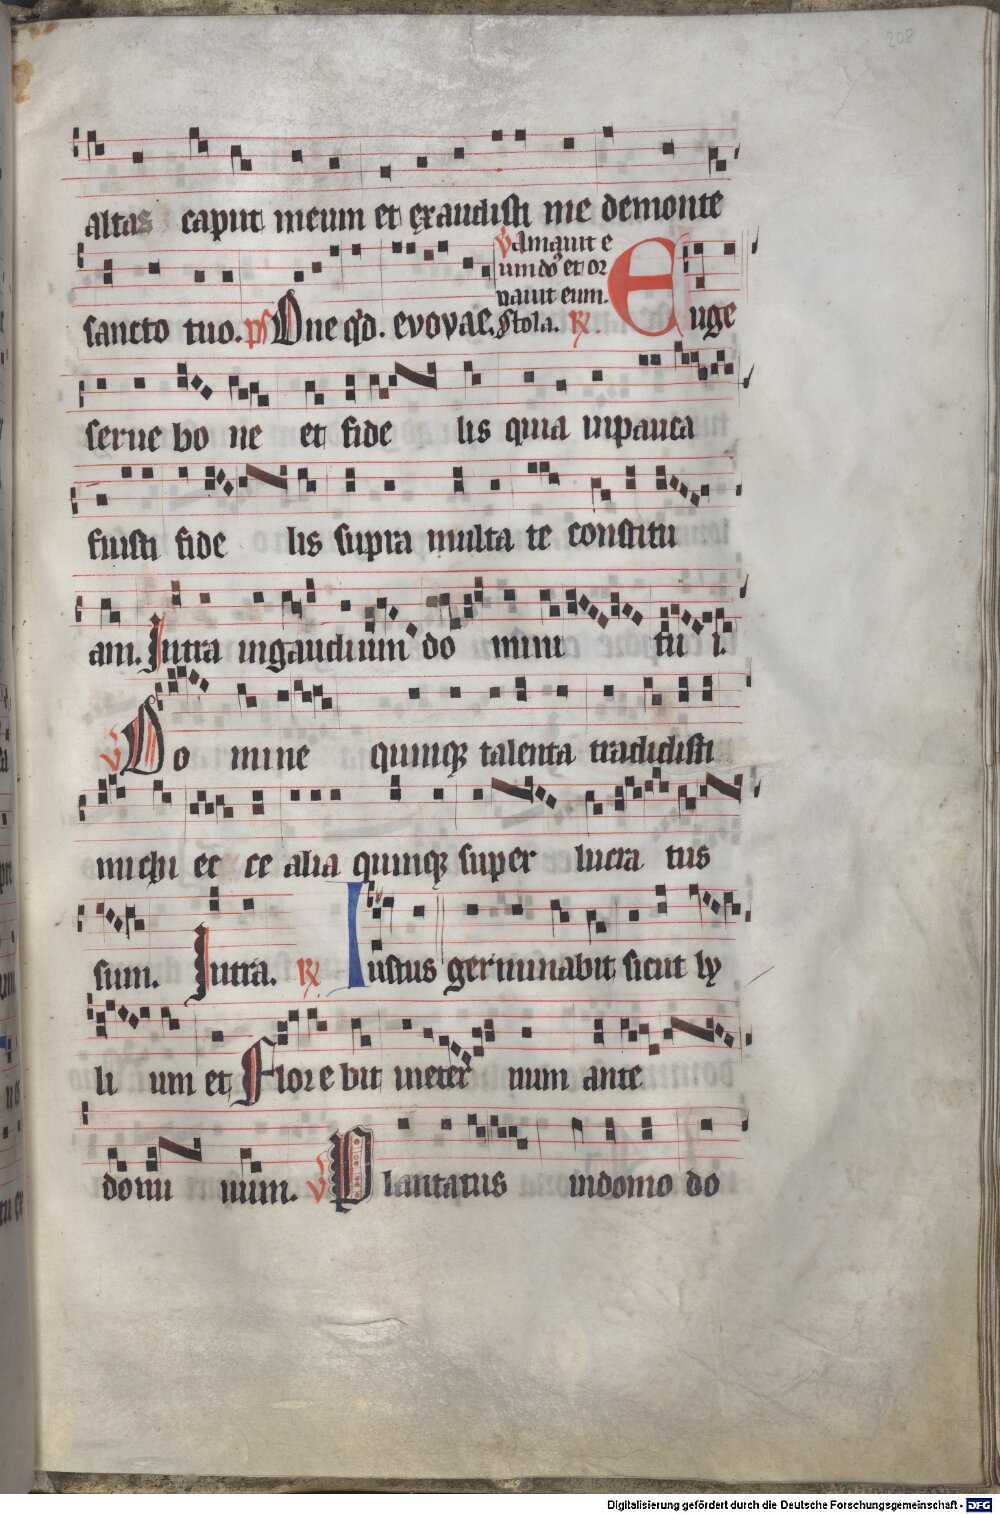 208
altas caput meum et exaudisti me demonte
sancto tuo. ps Dne qd. evovae. Stola. R. Euge
V amauit e
um do et or
nauit eum.
serue bo ne et fide lis quia inpauca
fuisti fide lis supra multa te constitu
am. Intra ingaudium do mini tu i.
V Do mine quinq talenta tradidisti
michi ec ce alia quinq super lucra tus
sum. Intra. R Iustus germinabit sicut ly
li um et Flore bit ineter num ante
domi num. V Plantatus indomo do
Digitalisierung gefördert durch die Deutsche Forschungsgemeinschaft - DFG